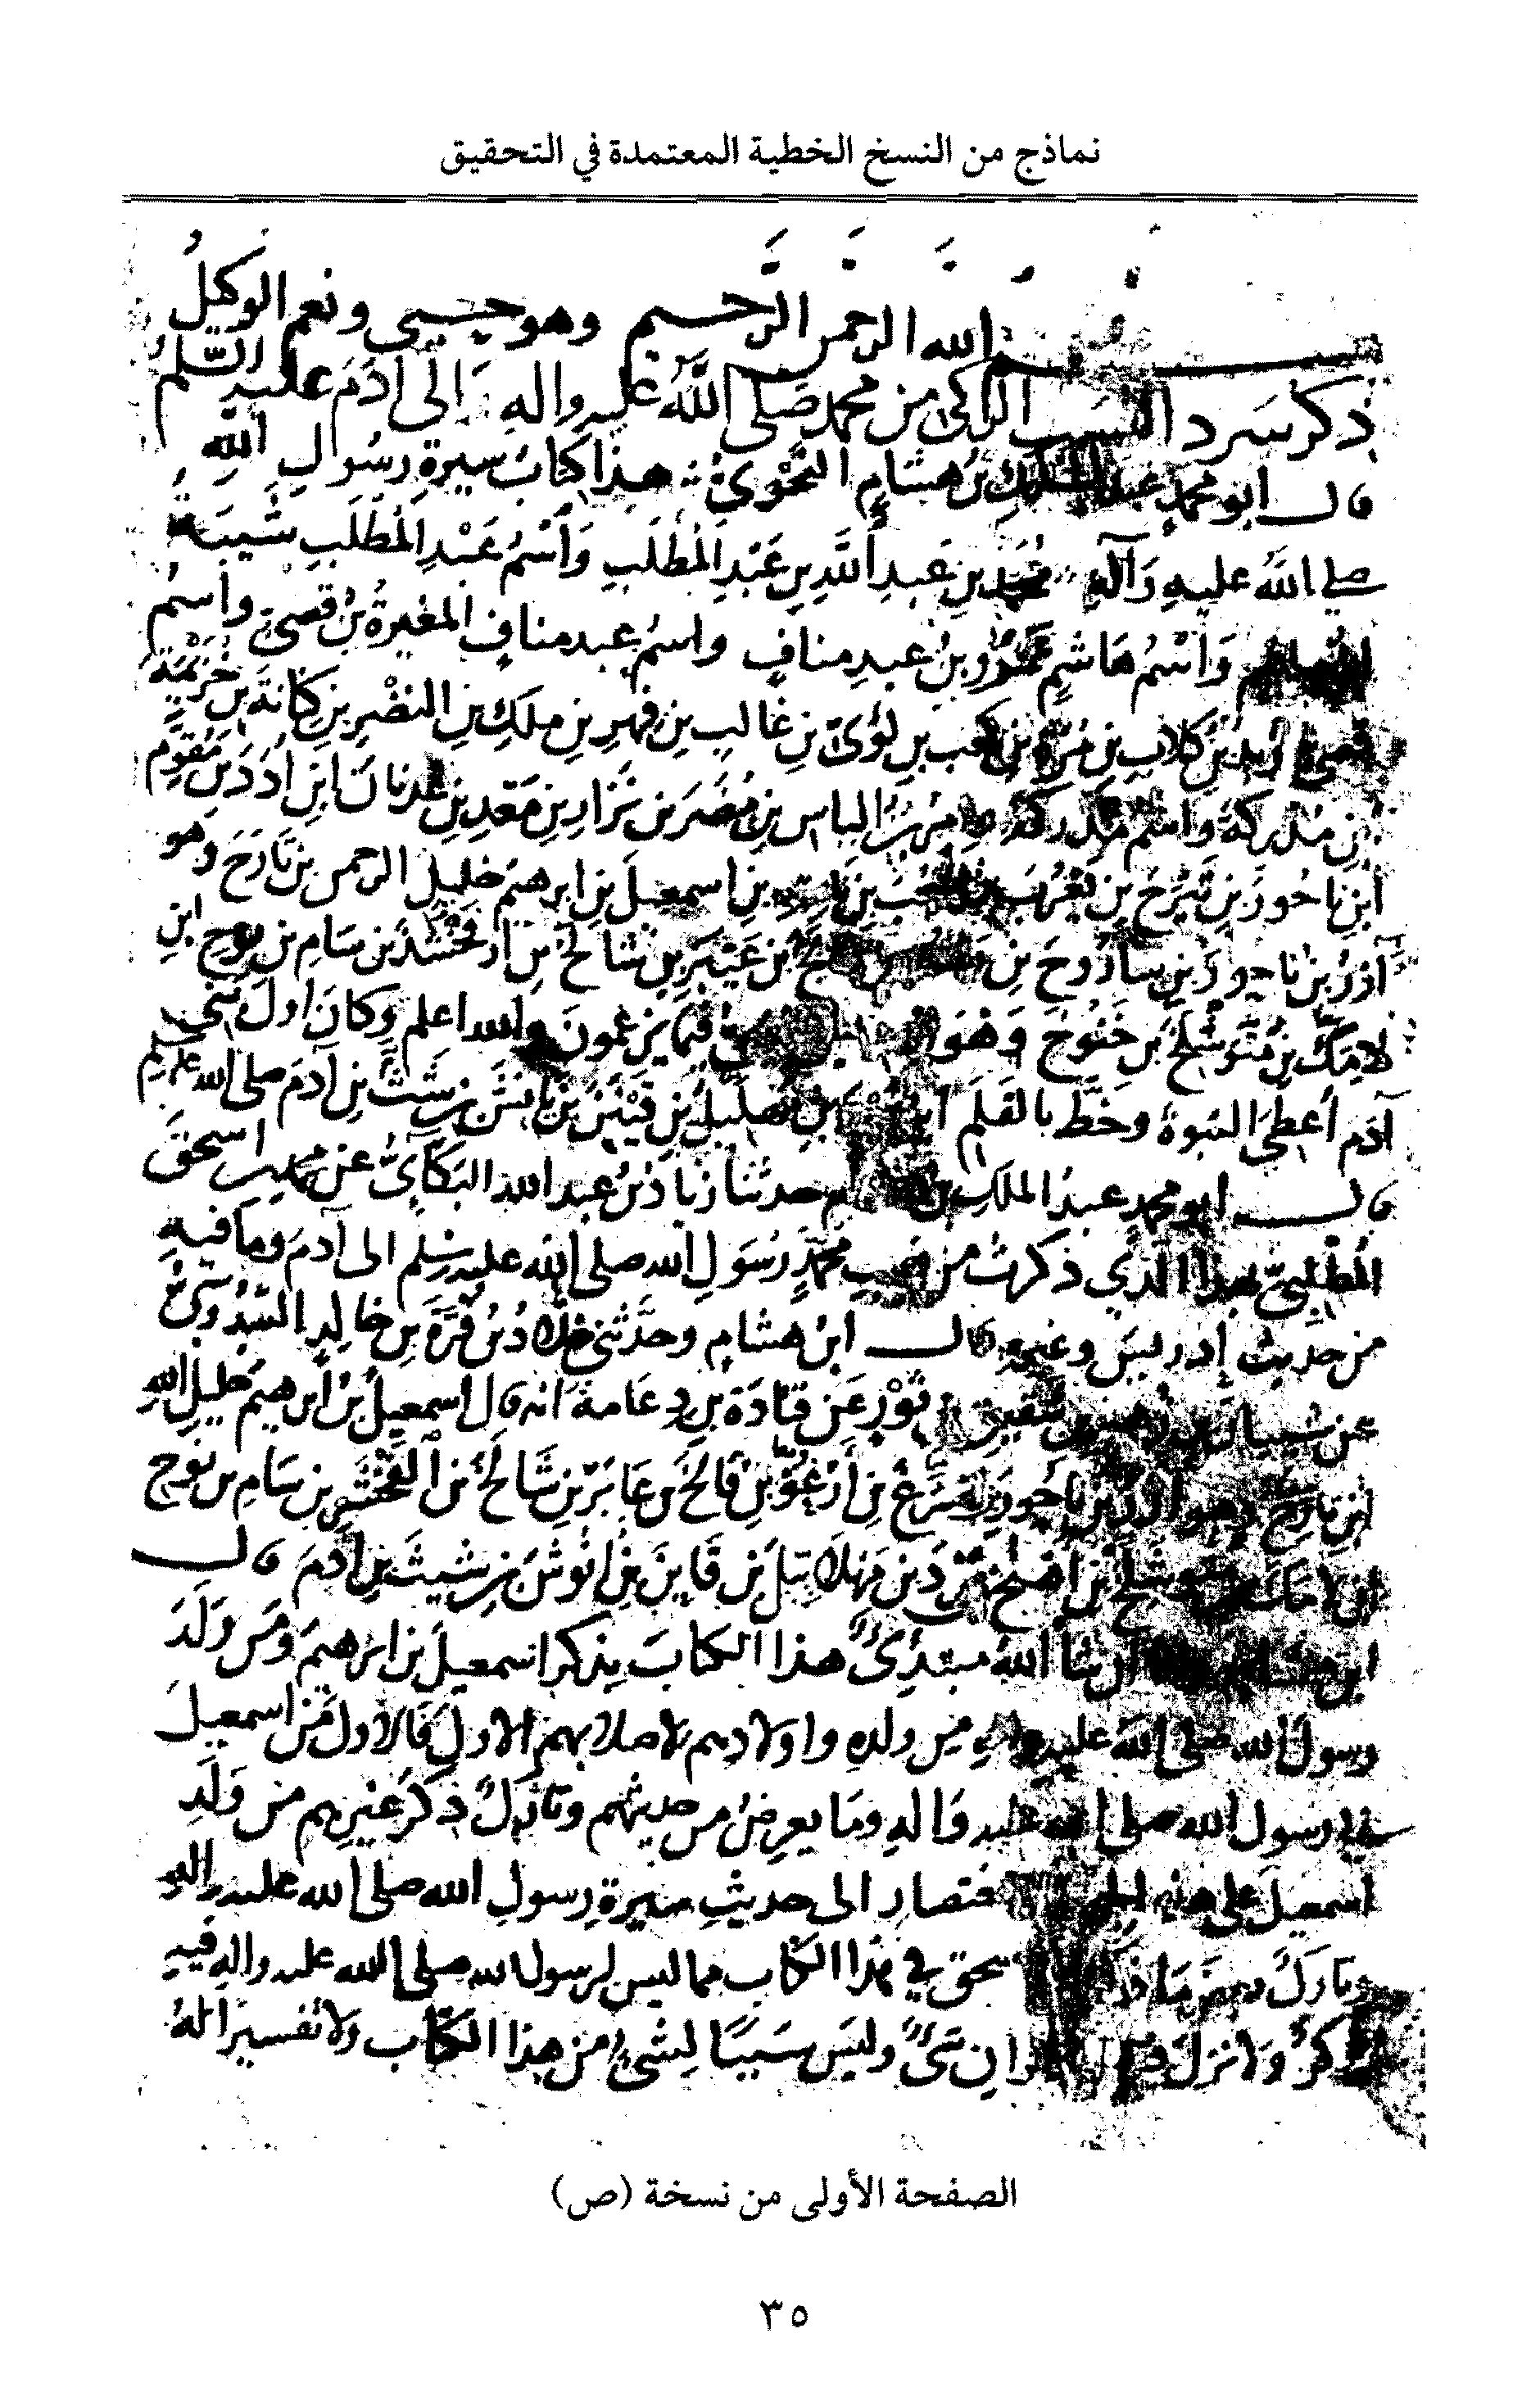 نماذج من النسخ الخطية المعتمدة في التحقيق
بسم الله الرحمن الرحيم وهو حسبي ونعم الوكيل
ذكر سرد النسب الزاكى من محمد صلى الله عليه واله الى ادم عليه السلم
قال ابو محمد عبد الملك بن هشام النحوي هذا كتاب سيرة رسول الله
صلى الله عليه وآله محمد بن عبد الله بن عبد المطلب واسم عبد المطلب شيبة
واسم هاشم عمرو بن عبد مناف واسم عبد مناف المغيرة بن قصي واسم
قصي زيد بن كلاب بن مرة بن كعب بن لؤى بن غالب بن فهر بن ملك بن النضر بن كنانة بن خزيمة
بن مدركة واسم مدركة عامر بن الياس بن مضر بن نزار بن معد بن عدنان ابن ادد بن مقوم
ابن ناحور بن تيرح بن يعرب بن يشجب بن نابت بن اسمعيل بن ابرهيم خليل الرحمن بن تارح وهو
آزر بن ناحور بن ساروح بن بن عيبر بن شالخ بن ارفخشد بن سام بن نوح ابن
لامك بن متوشلح بن خنوخ وهو فيما يزعمون والله اعلم وكان اول بني
آدم اعطى النبوة وخط بالقلم ابن بن مهليل بن قينن بن يانش بن شث بن آدم صلى الله عليهم
قال ابو محمد عبد الملك بن حدثنا زياد بن عبد الله البكائي عن محمد بن اسحق
المطلبي بهذا الذي ذكرت من نسب محمد رسول الله صلى الله عليه وسلم الى آدم وما فيه
من حديث إدريس وغيره قال ابن هشام وحدثني خلاد بن قرة بن خالد السدوسي
عن شيبان بن زهير بن شقيق بن ثور عن قتادة بن دعامة انه قال اسمعيل بن ابرهيم خليل الله
ابن تارح وهو آزر بن ناحور بن اسرغ بن أرغو بن فالخ بن عابر بن شالخ بن الفخشد بن سام بن نوح
ابن لامك بن متوشلخ بن اخنخ بن يرد بن مهلائيل بن قاين بن انوش بن شيث بن ادم قال
ابن هشام ان شا الله مبتدئ هذا الكتاب بذكر اسمعيل بن ابرهيم ومن ولد
رسول الله صلى الله عليه واله من ولده واولادهم لاصلابهم الاول فالاول من اسمعيل
الى رسول الله صلى الله عليه واله وما يعرض من حديثهم وتارك ذكر غيرهم من ولد
اسمعيل على هذه الجهة ختصار الى حديث سيرة رسول الله صلى الله عليه واله
وتارك بعض ما سحق في هذا الكتاب مما ليس لرسول الله صلى الله عليه واله فيه
ذكر ولا نزل فيه من القران شئ وليس سببا لشئ من هذا الكتاب ولا تفسيرا له
الصفحة الأولى من نسخة (ص)
٣٥